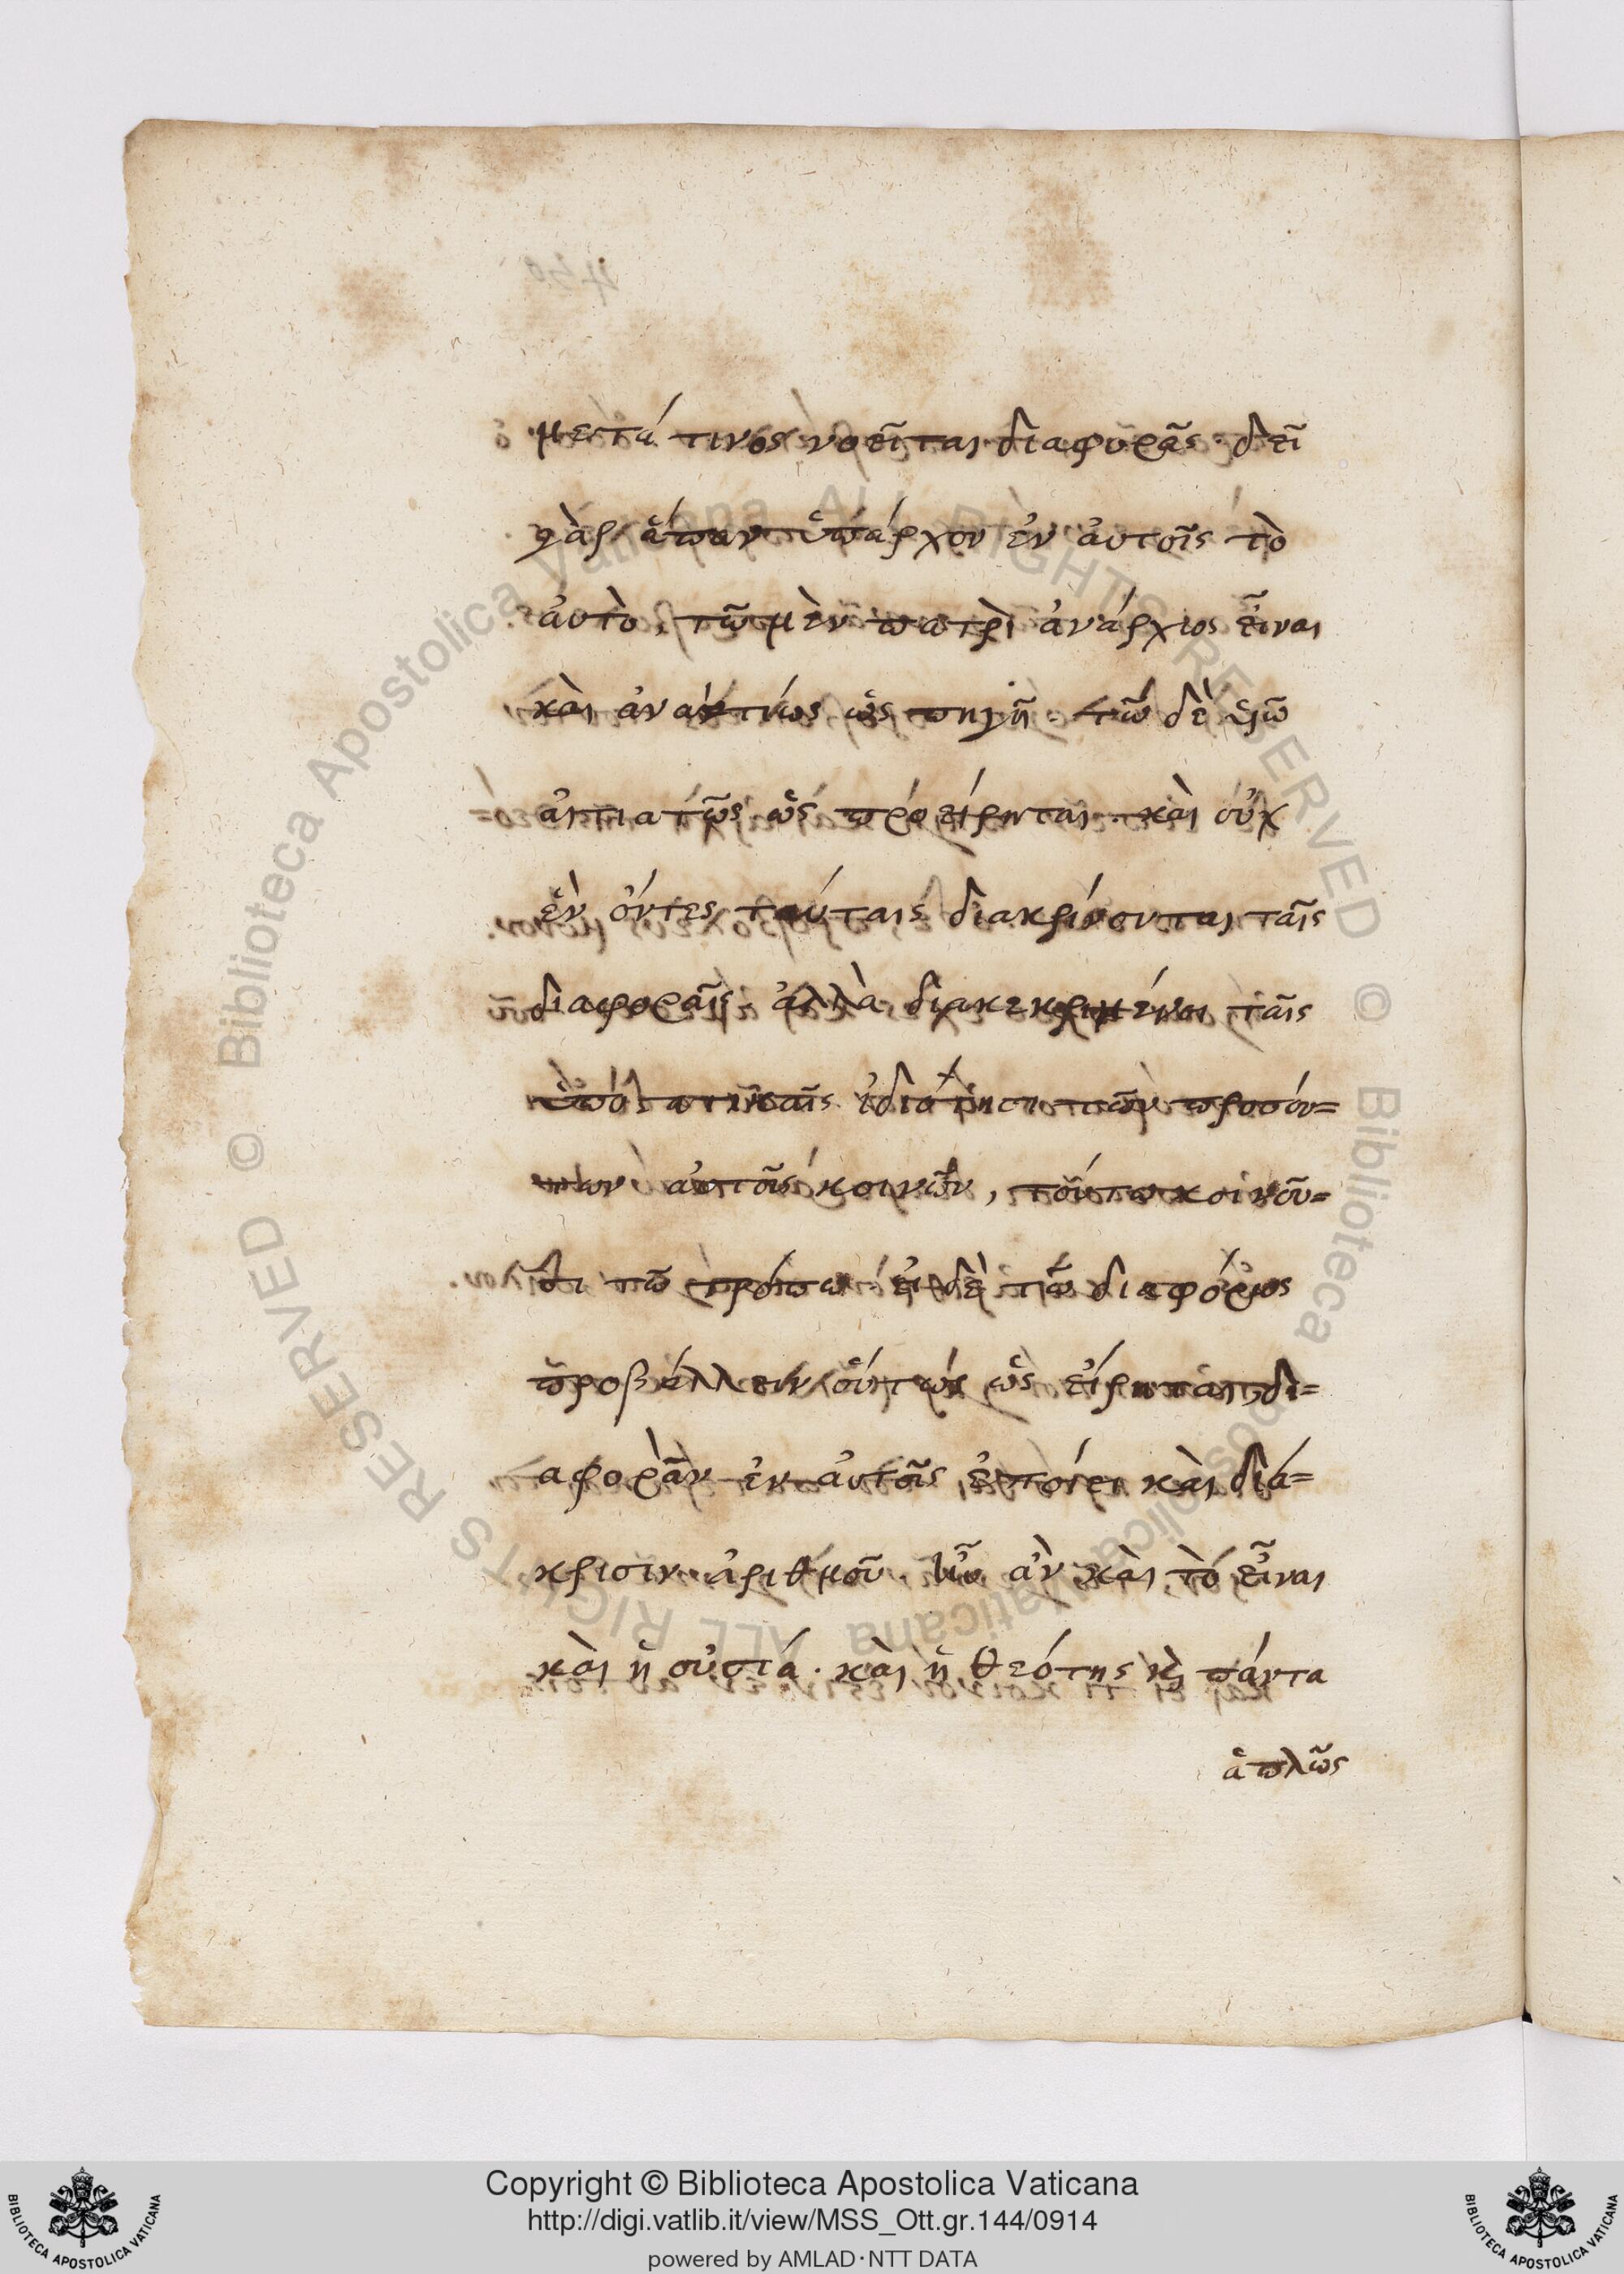 μετά τινος νοεῖται διαφορᾶς· δεῖ
γὰρ ἅπαν ὑπάρχον ἐν αὐτοῖς τὸ
αὐτὸ, τῶ μὲν πατρὶ ἀνάρχως εἶναι
καὶ ἀναιτίως ὡς πηγῆ· τῶ δὲ υἱῶ
αἰτιατῶς ὡς προείρηται· καὶ οὐχ
ἓν ὄντες ταύταις διακρίνονται ταῖς
διαφοραῖς· ἀλλὰ διακεκριμένοι ταῖς
τῶν προσόν=
των αὐτοῖς κοινῶν, κοινοῦ=
νται τῶ τρόπω· εἰ δὲ τὸ διαφόρως
προβάλλειν οὕτως ὡς εἴρηται, δι=
αφορὰν ἐν αὐτοῖς ἐποίει καὶ διά=
κρισιν ἀριθμοῦ· ἦν ἂν καὶ τὸ εἶναι
καὶ ἡ οὐσία· καὶ ἡ θεότης καὶ πάντα
ἁπλῶς
Copyright © Biblioteca Apostolica Vaticana
http://digi.vatlib.it/view/MSS_Ott.gr.144/0914
powered by AMLAD·NTT DATA
BIBLIOTECA APOSTOLICA VATICANA
BIBLIOTECA APOSTOLICA VATICANA
© Biblioteca Apostolica Vaticana ALL RIGHTS RESERVED
© Biblioteca Apostolica Vaticana ALL RIGHTS RESERVED